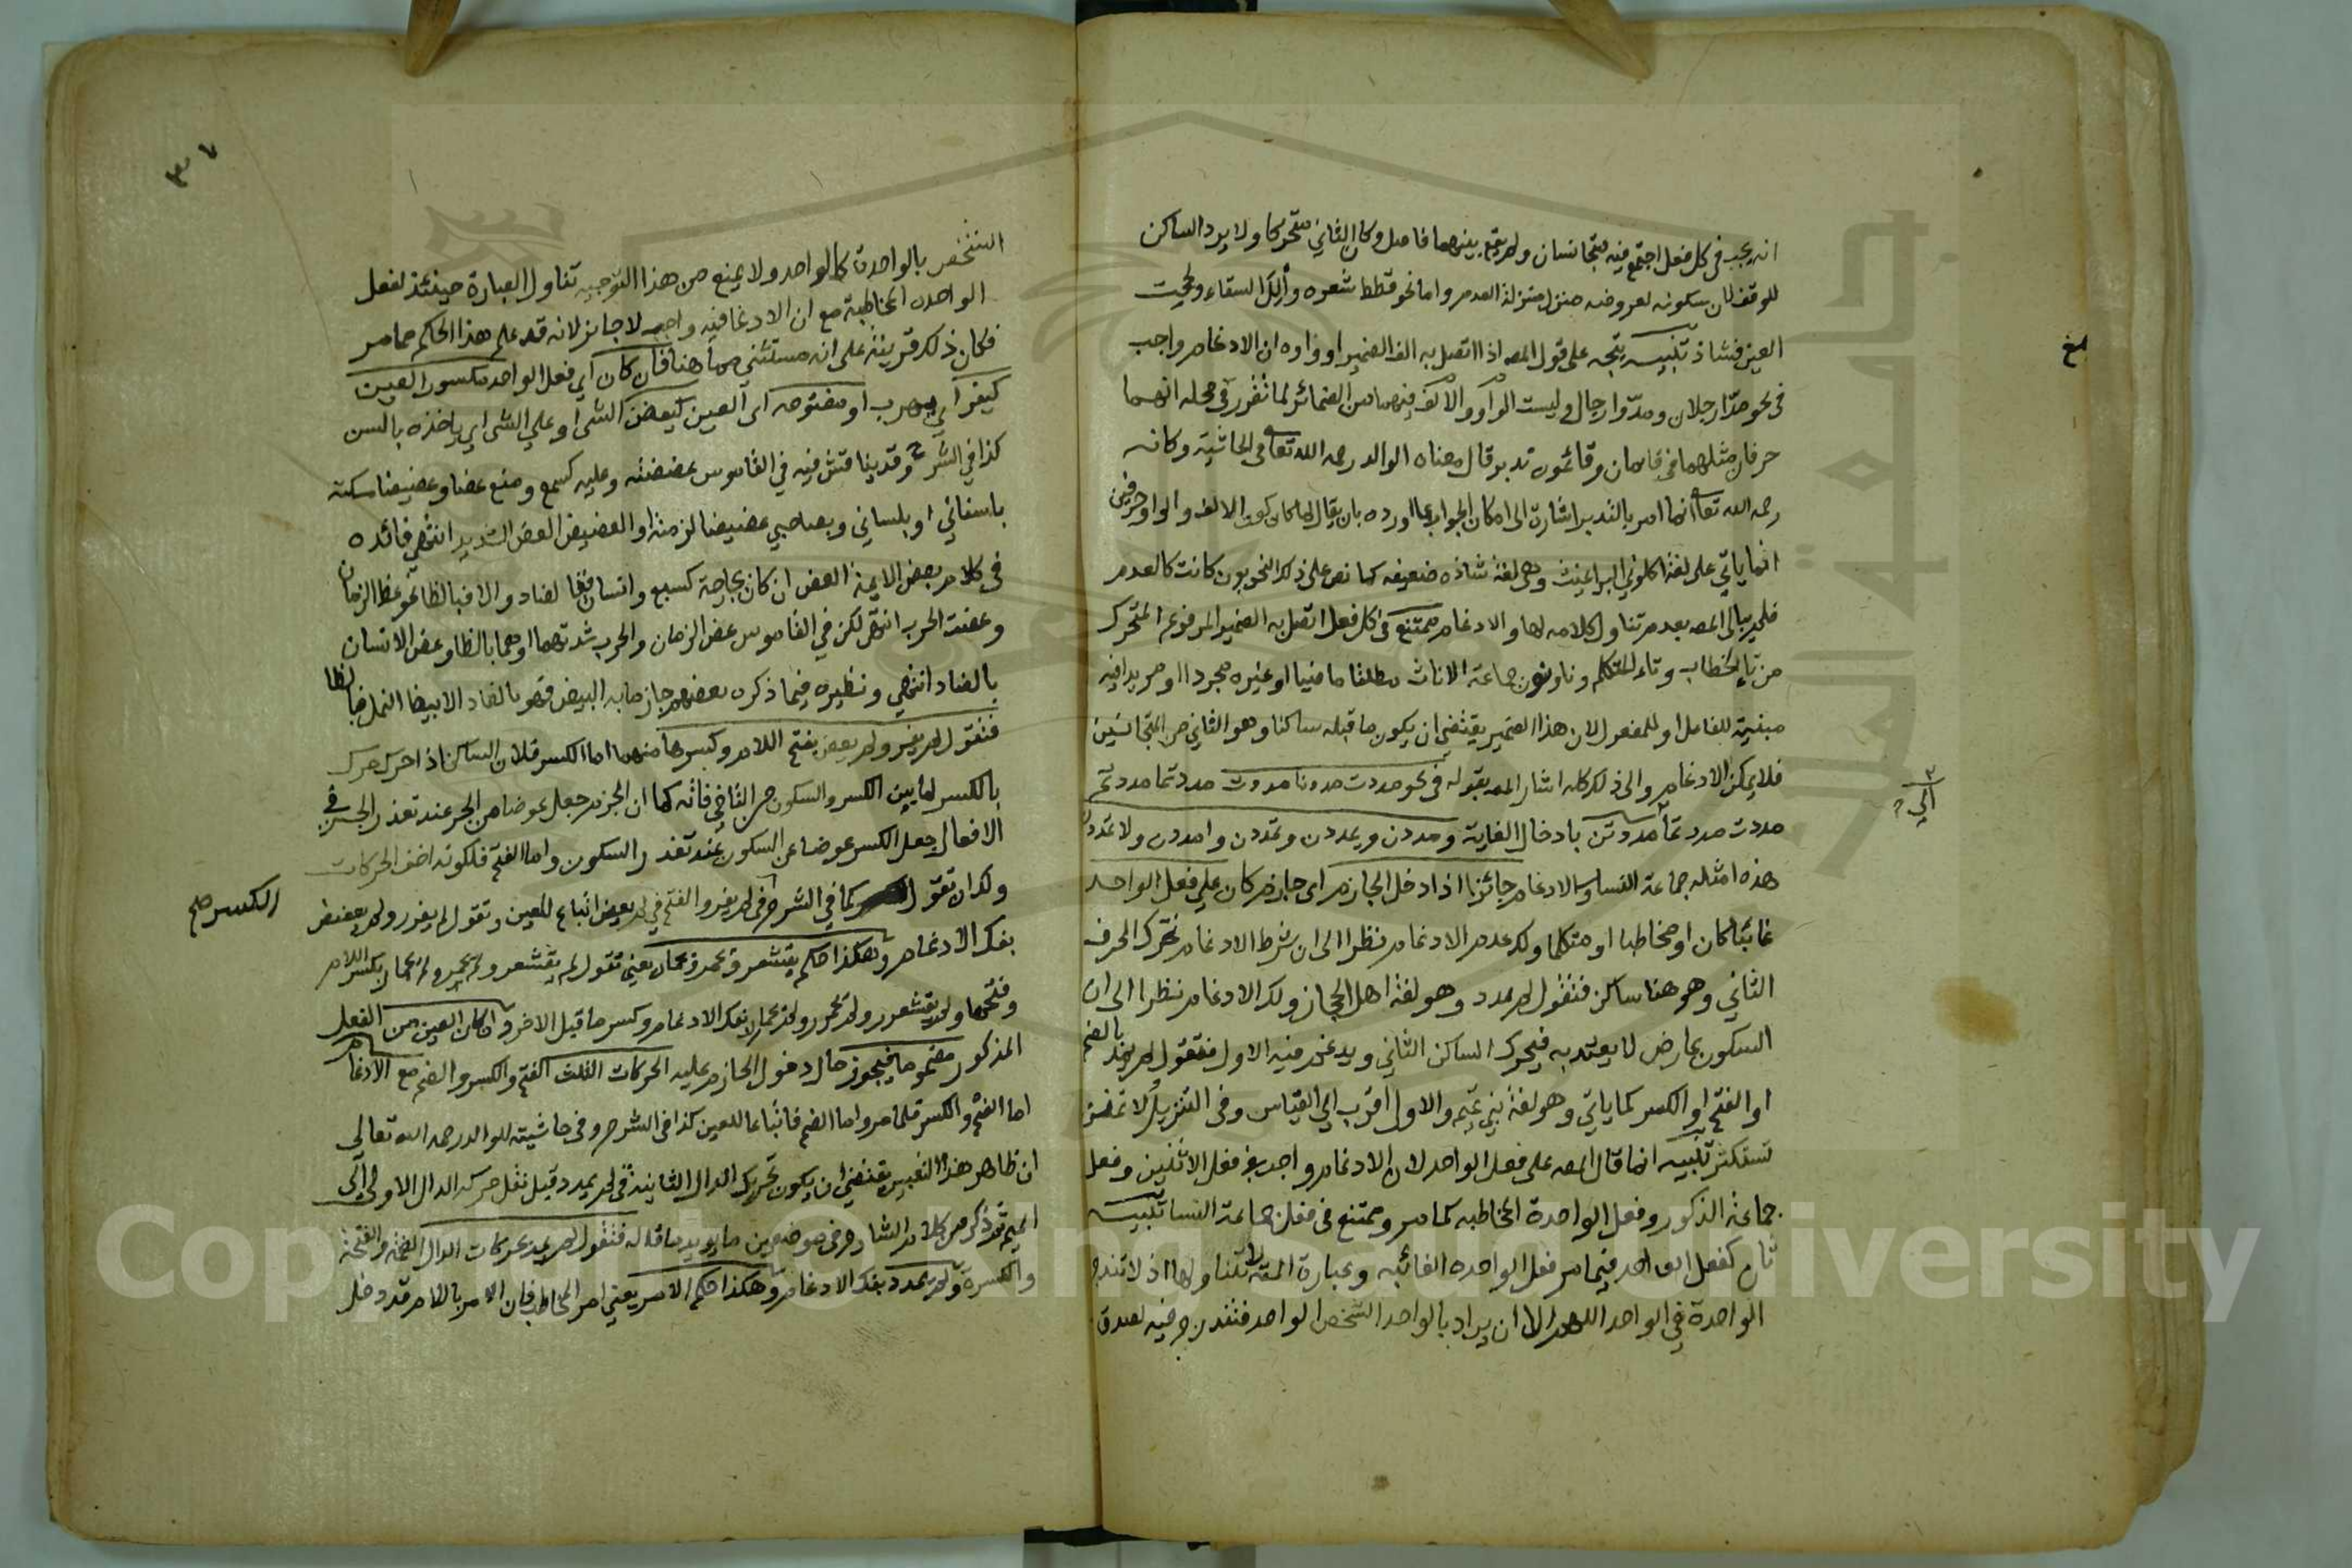 انه يجب في كل فعل اجتمع فيه متجانسان ولم يقع بينهما فاصل وكان الثاني متحركا ولا يرد الساكن
للوقف لان سكونه لعروضه منزل منزلة العدم واما نحو قطط شعره وألل السقاء ولححت
العين فشاذ تنبيه يتجه على قول المص اذا اتصل به الف الضمير او واوه ان الادغام واجب
في نحو مدّا رجلان ومدّوا رجال وليست الواو والالف فيهما من الضمائر لما تقرر في محله انهما
حرفان مثلهما في قامان وقائمون تدبر قال معناه الوالد رحمه الله تعالى في الحاشية وكانه
رحمه الله تعالى انما امر بالتدبر اشارة الى امكان الجواب عما اورده بان يقال لما كان كون الالف والواو حرفين
انما ياتي على لغة اكلوني البراغيث وهي لغة شاذه ضعيفه كما نص على ذلك النحويون كانت كالعدم
فلم يبال المص بعدم تناول كلامه لها والادغام ممتنع في كل فعل اتصل به الضمير المرفوع المتحرك
من تاء الخطاب وتاء المتكلم ونا ونون جماعة الاناث مطلقا ماضيا او غيره مجردا او مزيدا فيه
مبنية للفاعل او للمفعول لان هذا الضمير يقتضي ان يكون ما قبله ساكنا وهو الثاني من المتجانسين
فلا يمكن الادغام والى ذلك كله اشار المص بقوله في نحو مددت مددنا مددت مددتما مددتم
مددت مددتما مددتن بادخال الغاية ومددن ويمددن وتمددن وامددن ولا تمددن
هذه امثلة جماعة النسا والادغام جائز اذا دخل الجازم اى جازم كان على فعل الواحد
غائبا كان او مخاطبا او متكلما ولك عدم الادغام نظرا الى ان شرط الادغام تحرك الحرف
الثاني وهو هنا ساكن فتقول لم يمدد وهو لغة اهل الحجاز ولك الادغام نظرا الى ان
السكون عارض لا يعتد به فيحرك الساكن الثاني ويدغم فيه الاول فتقول لم يمد بالضم
او الفتح او الكسر كما ياتي وهو لغة بني تميم والاول اقرب الى القياس وفي التنزيل ولا تمنن
تستكثر تنبيه انما قال المص على فعل الواحد لان الادغام واجب في فعل الاثنين وفعل
جماعة الذكور وفعل الواحدة المخاطبه كما مر وممتنع في فعل جماعة النسا تنبيه
ثان كفعل الواحد فيما مر فعل الواحده الغائبه وعبارة المص لا تتناولها اذ لا تندرج
الواحدة في الواحد اللهم الا ان يراد بالواحد الشخص الواحد فتندرج فيه لصدق
الى
٣٧
الشخص بالواحدة كالواحد ولا يمنع من هذا التوجيه تناول العبارة حينئذ لفعل
الواحده المخاطبة مع ان الادغام فيه واجب لا جائز لانه قد علم هذا الحكم مما مر
فكان ذلك قرينة على انه مستثنى مما هنا فان كان اى فعل الواحد مكسور العين
كيفر اى يهرب او مفتوحه اى العين كيعض الشى او على الشى اى ياخذه بالسن
كذا في الشرح وقد يناقش فيه في القاموس عضضته وعليه كسمع ومنع عضا وعضيضا مسكته
باسناني او بلساني وبصاحبي عضيضا لزمته او العضيض العض الشديد انتهى فائده
في كلام بعض الايمة العض ان كان بجارحة كسبع وانسان فبالضاد والا فبالظا نحو عظ الزمان
وعظت الحرب انتهى لكن في القاموس عض الزمان والحرب شدتهما او هما بالظا وعض الانسان
بالضاد انتهى ونظيره فيما ذكره بعضهم جاز ما به البيض فهو بالضاد الا بيض النمل فبالظا
فتقول لم يفر ولم يعض بفتح اللام وكسرها منهما اما الكسر فلان الساكن اذا حرك حرك
بالكسر لما بين الكسر والسكون من التاخي فانه كما ان الجزم جعل عوضا من الجر عند تعذر الجر في
الافعال جعل الكسر عوضا عن السكون عند تعذر السكون واما الفتح فلكونه اخف الحركات
ولك ان تقول كما في الشرح في لم يفر والفتح في لم يعض اتباع للعين وتقول لم يفرر ولم يعضض
الكسر صح
بفك الادغام وهكذا حكم يقشعر ويحمر ويحمار يعني تقول لم يقشعر ولم يحمر ولم يحمار بكسر اللام
وفتحها ولم يقشعرر ولم يحمرر ولم يحمارر بفك الادغام وكسر ما قبل الاخر وان كان العين من الفعل
المذكور مضموما فيجوز حال دخول الجازم عليه الحركات الثلث الفتح والكسر والضم مع الادغام
اما الفتح والكسر فلما مر واما الضم فاتباعا للعين كذا في الشرح وفي حاشيته للوالد رحمه الله تعالى
ان ظاهر هذا التعبير يقتضي ان يكون تحريك الدال الثانية في لم يمدد قبل نقل حركه الدال الاولى الى
الميم وقد ذكر من كلام الشارح في موضعين ما يؤيد ما قاله فتقول لم يمد بحركات الدال الضمة والفتحة
والكسرة ولم يمدد بفك الادغام وهكذا حكم الامر يعني امر المخاطب فان الامر باللام قد دخل
Copyright © King Saud University